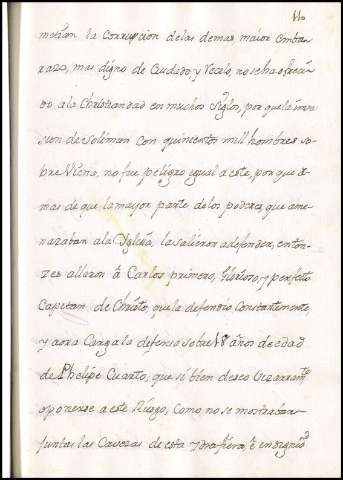 110
metian la Corrupcion delas demas maior Emba
razo, mas digno de Cuidado y Recelo, no seha ofreci
do ala Christiandad en muchos Siglos, por que la inva
sion de soliman con quinientos mill hombres so
bre Viena, no fue peligro igual a este, por que de
mas de que la mayor parte delos poderes que ame
nazaban ala Yglesia, la salieron adefender, enton
zes allaron a Carlos primero, Glorioso, y perfecto
Capitan de Christo, que la defendio Constantemente,
y aora Carga la defensa sobre 18 años de edad
de Phelipe Cuarto, que si bien deseo
oponerse a este Riesgo, Como no se mostraban
Juntas las Cavezas de esta ydra fiera,